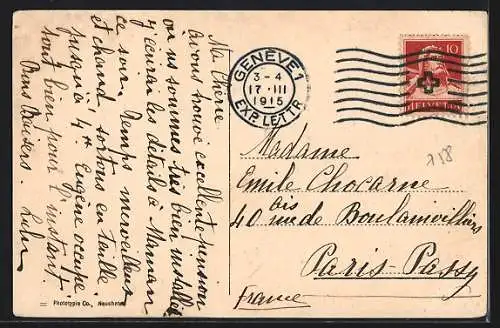 Ma chérie
avons trouvé excellente pension
ou ns sommes très bien installés
j'écrirai les détails à Maman
ce soir. Temps merveilleux
et chaud, sortons en taille
jusqu'à 4h. Eugène occupe
tout bien pour l'instant.
Bons Baisers.
GENÈVE 1
3-4
17·III
1915
EXP. LETTR.
10
HELVETIA
Madame
Emile Chocarne
bis
40 rue de Boulainvilliers
Paris-Passy
France
118
Phototypie Co., Neuchâtel